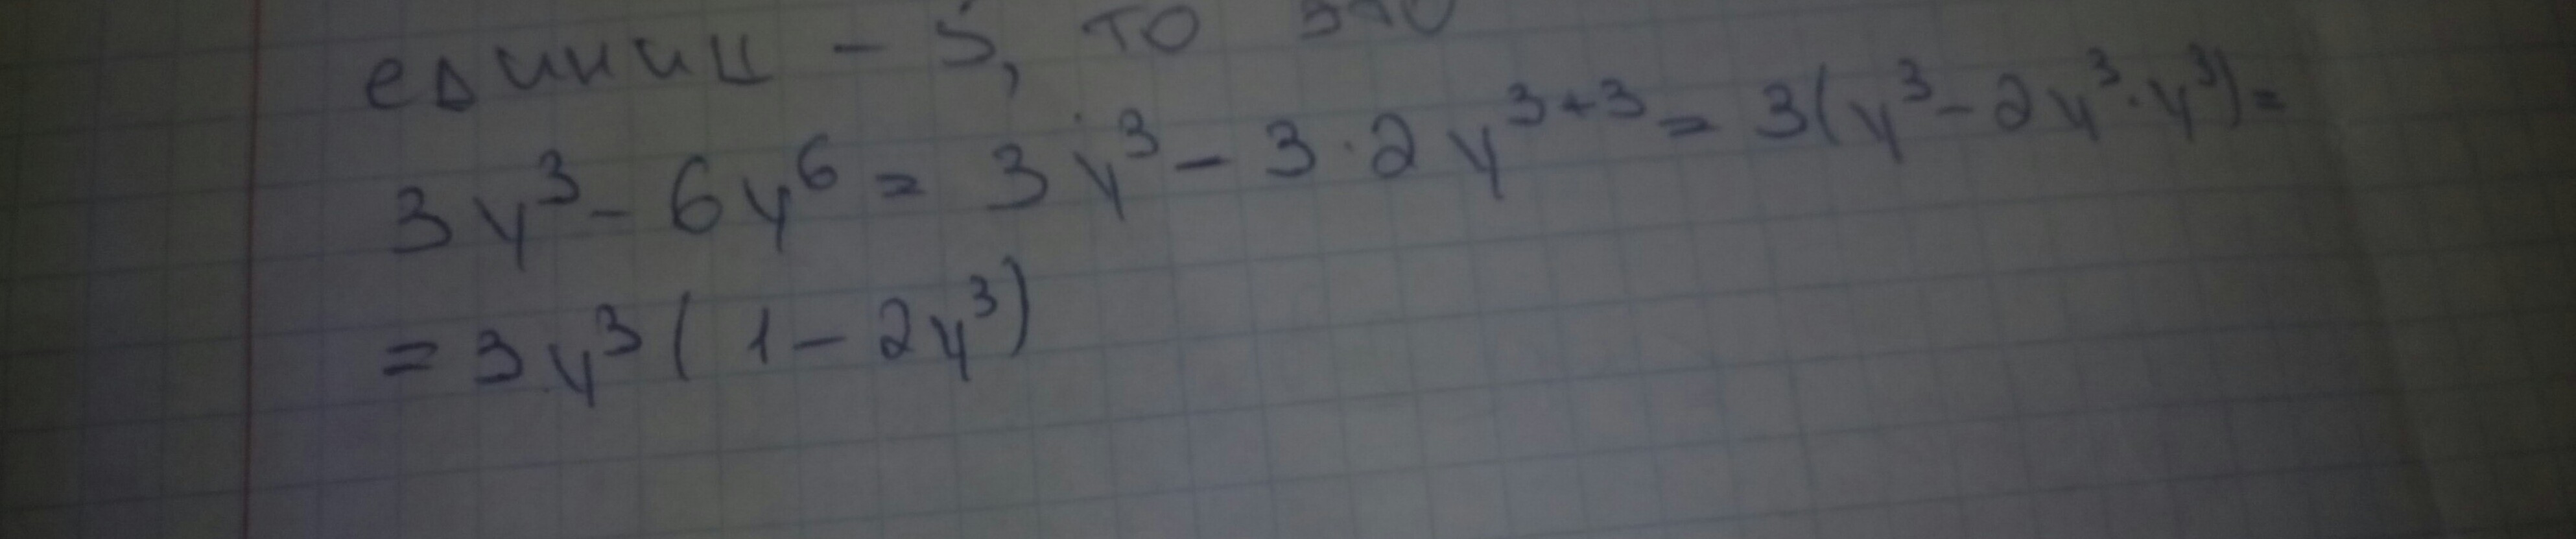 единиц - 5, то это
3y³ - 6y⁶ = 3y³ - 3·2y³⁺³ = 3(y³ - 2y³·y³) =
= 3y³(1 - 2y³)